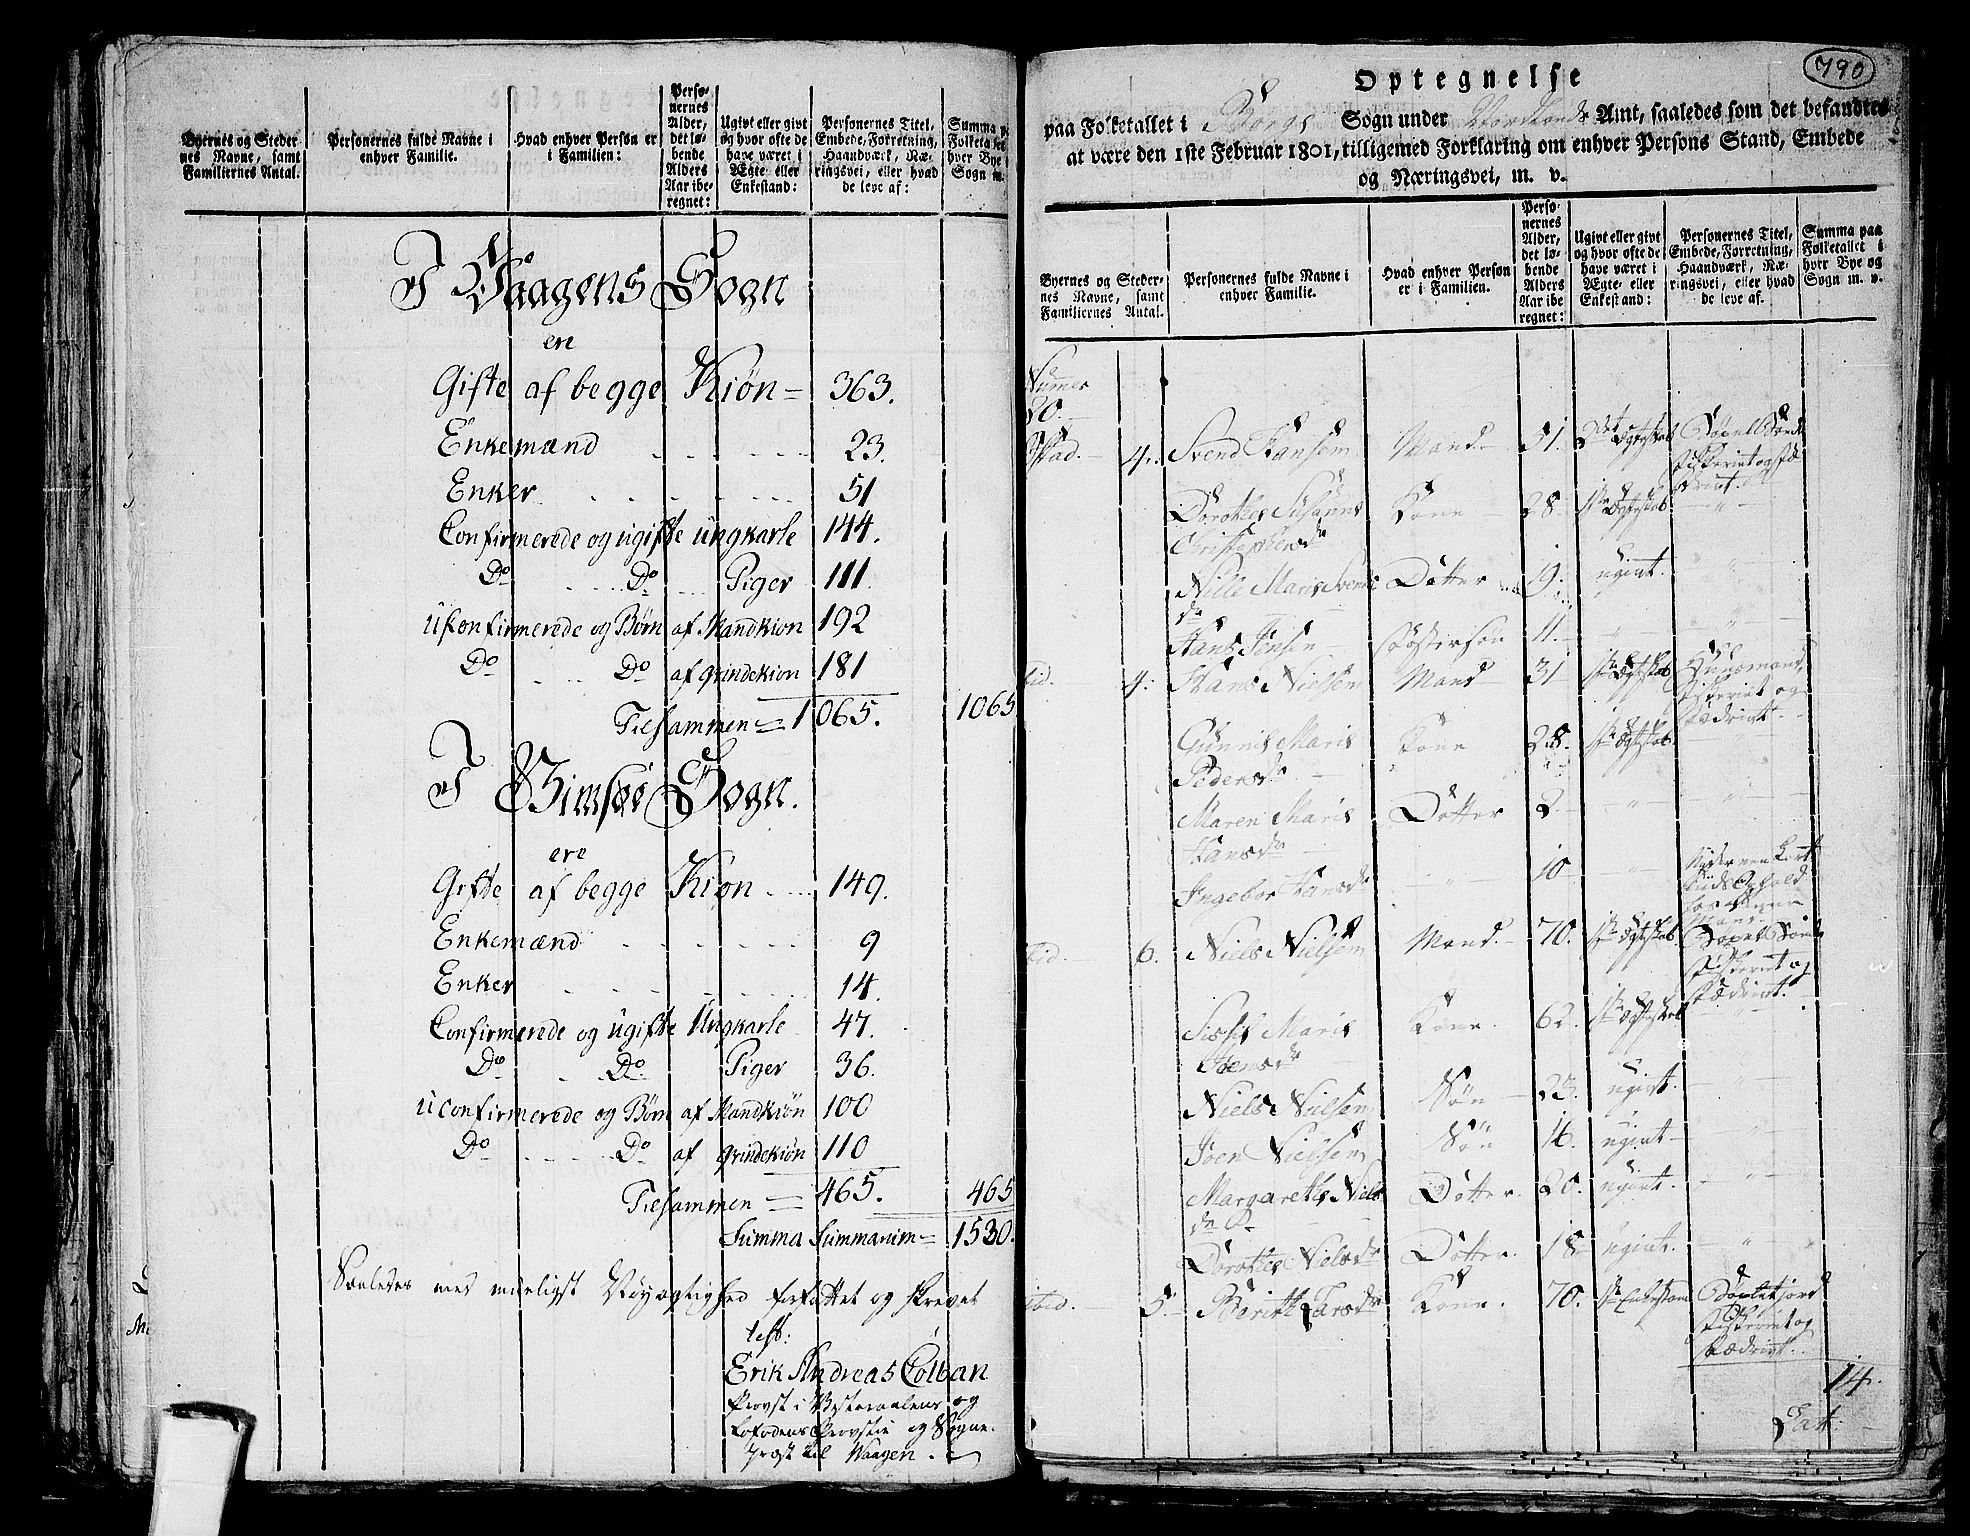 Byernes og Steder-
nes Navne, samt
Familiernes Antal.
Personernes fulde Navne i
enhver Familie.
Hvad enhver Person er
i Familien:
Perso-
nernes
Alder,
det lø-
bende
Alders
Aar ibe-
regnet:
Ugivt eller givt
og hvor ofte de
have været i
Ægte- eller
Enkestand:
Personernes Titel,
Embede, Forretning,
Haandværk, Næ-
ringsvei, eller hvad
de leve af:
Summa pa
Folketa
hver Bye
Sogn m.
I Vaagens Sogn
ere
Gifte af begge Kiøn = 363.
Enkemænd 23.
Enker 51
Confirmerede og ugifte ungkarle 144.
Do Do Piger 111.
uconfirmerede og Børn af Mandkiøn 192
Do Do af Qvindekiøn 181
Tilsammen = 1065. 1065
I Gimsøe Sogn.
ere
Gifte af begge Kiøn 149.
Enkemænd 9
Enker 14.
Confirmerede og ugifte Ungkarle 47.
Do Do Piger 36.
uconfirmerede og Børn af Mandkiøn 100
Do Do af Qvindekiøn 110
Tilsammen = 465. 465
Summa Summarum = 1530.
Saaledes med mueligst Nøyagtighed forfattet og skrevet
test:
Erik Andreas Colban
Provst i Vesteraalens og
Lofodens Provstie og Sogne-
Præst til Waagen.
790
Optegnelse
paa Folketallet i Borge Sogn under Nordlands Amt, saaledes som det befandtes
at være den 1ste Februar 1801, tilligemed Forklaring om enhver Persons Stand, Embede
og Næringsvei, m. v.
Byernes og Steder-
nes Navne, samt
Familiernes Antal.
Personernes fulde Navne i
enhver Familie.
Hvad enhver Person
er i Familien.
Perso-
nernes
Alder,
det lø-
bende
Alders
Aar ibe-
regnet:
Ugivt eller givt
og hvor ofte de
have været i
Ægte- eller
Enkestand:
Personernes Titel,
Embede, Forretning,
Haandværk, Næ-
ringsvei, eller hvad
de leve af.
Summa paa
Folketallet i
hver Bye og
Sogn m. v.
4. Svend Hansen Mand 51. 2det Ægteskab
Fiskeriet og fæ
drivt.
Dorothea Susanna Kone 28. 1ste Ægteskab
Christophersdr
Nille Maria Svends Dotter 19. ugivt.
dr
Hans Jensen Søstersøn 11.
4. Hans Nielsen Mand 31 1ste Ægteskab Huusmand,
Fiskeriet og
fædrivt.
Maria Kone 28. 1ste Ægteskab
Pedersdr
Maren Maria Dotter 2
Hansdr
Ingebor Hansdr 10
6. Niels Nielsen Mand 70. 1ste Ægteskab
Fiskeriet og
fædrivt.
Maria Kone. 62. 1ste Ægteskab
Joensdr
Niels Nielsen Søn 23. ugivt.
Joen Nielsen Søn 16. ugivt
Margaretha Niels Dotter. 20. ugivt.
dr
Dorothea Nielsdr Dotter. 18 ugivt.
ibid. 5. Beritt Larsdr Kone. 70. 1ste Enkestand
Fiskeriet og
fædrivt.
14.
Lat: